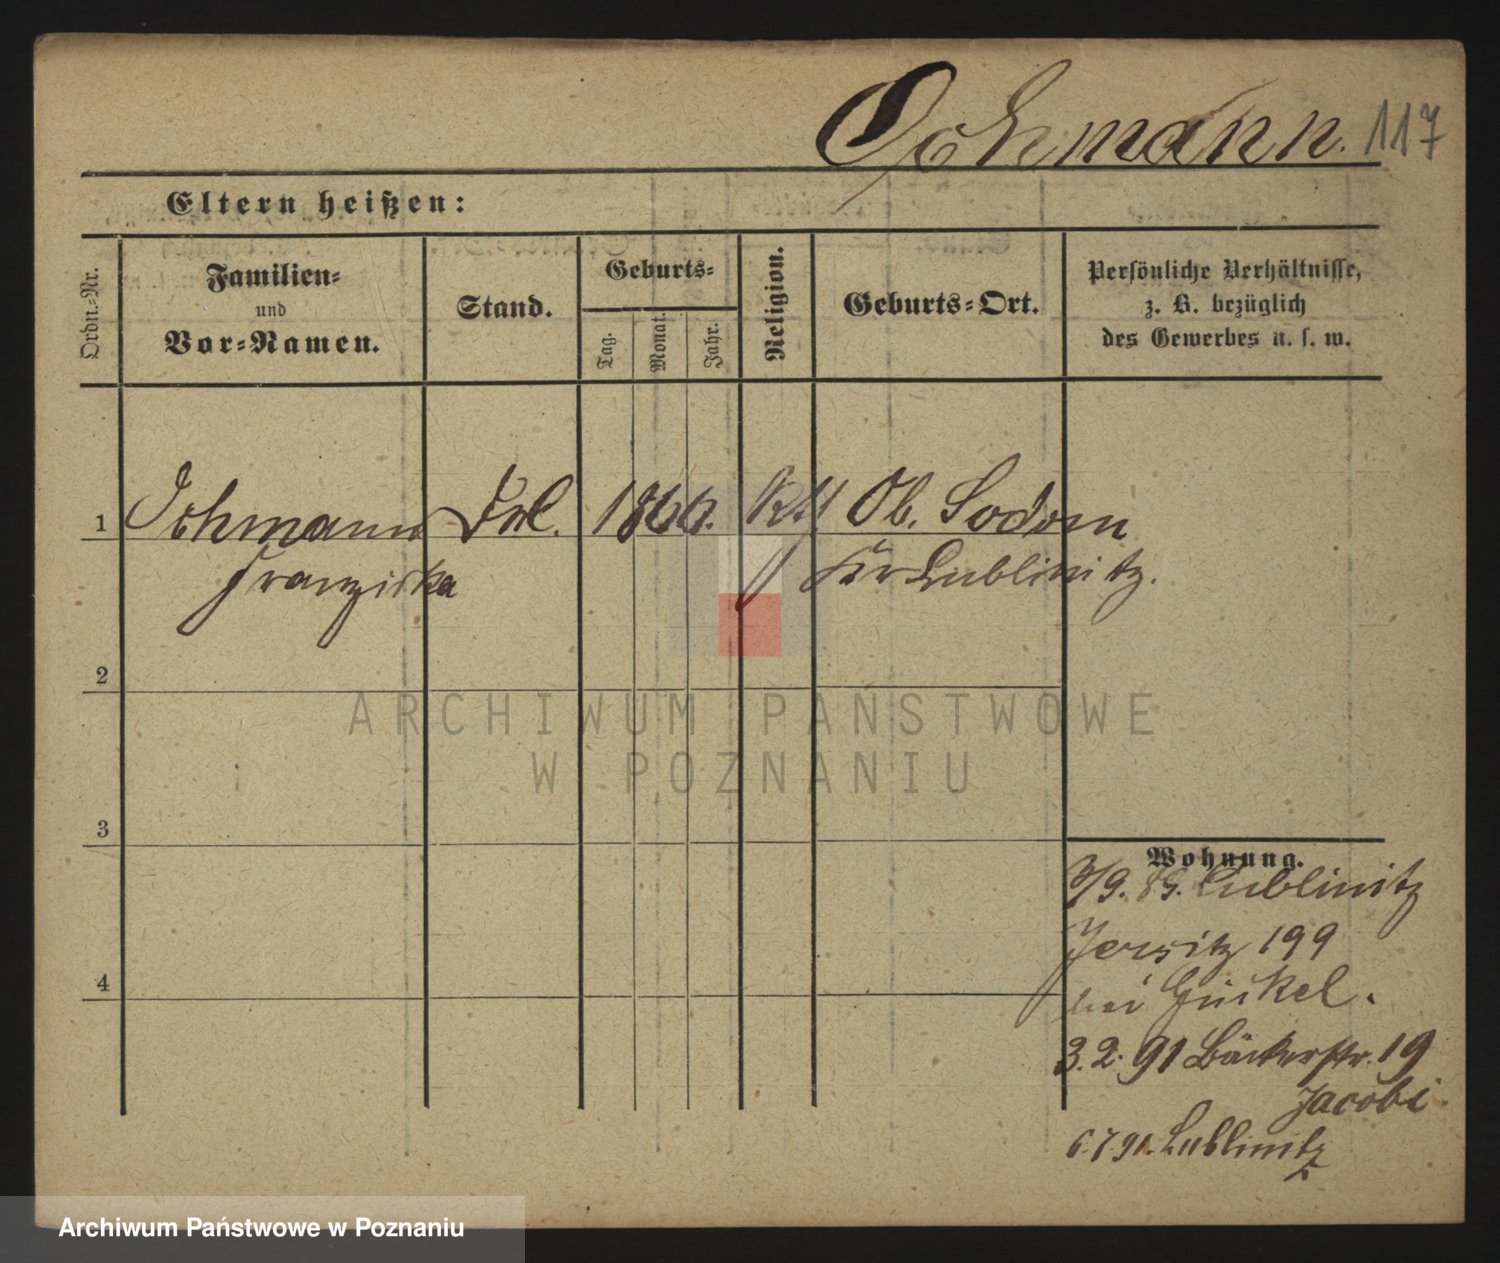 Ochmann. 117
Eltern heißen:
Ordn.-Nr.
Familien-
und
Vor-Namen.
Stand.
Geburts-
Tag.
Monat.
Jahr.
Religion.
Geburts-Ort.
Persönliche Verhältnisse,
z. B. bezüglich
des Gewerbes u. s. w.
1 Ochmann Frl. 1866. Ob. Sodom
Franziska Kr Lublinitz.
2
ARCHIWUM PAŃSTWOWE
W POZNANIU
3
Wohnung.
3/9. 89. Lublinitz
Jersitz 199
bei
4
3. 2. 91 Bäckerstr. 19
Jacobi.
6.7.91. Lublinitz
Archiwum Państwowe w Poznaniu